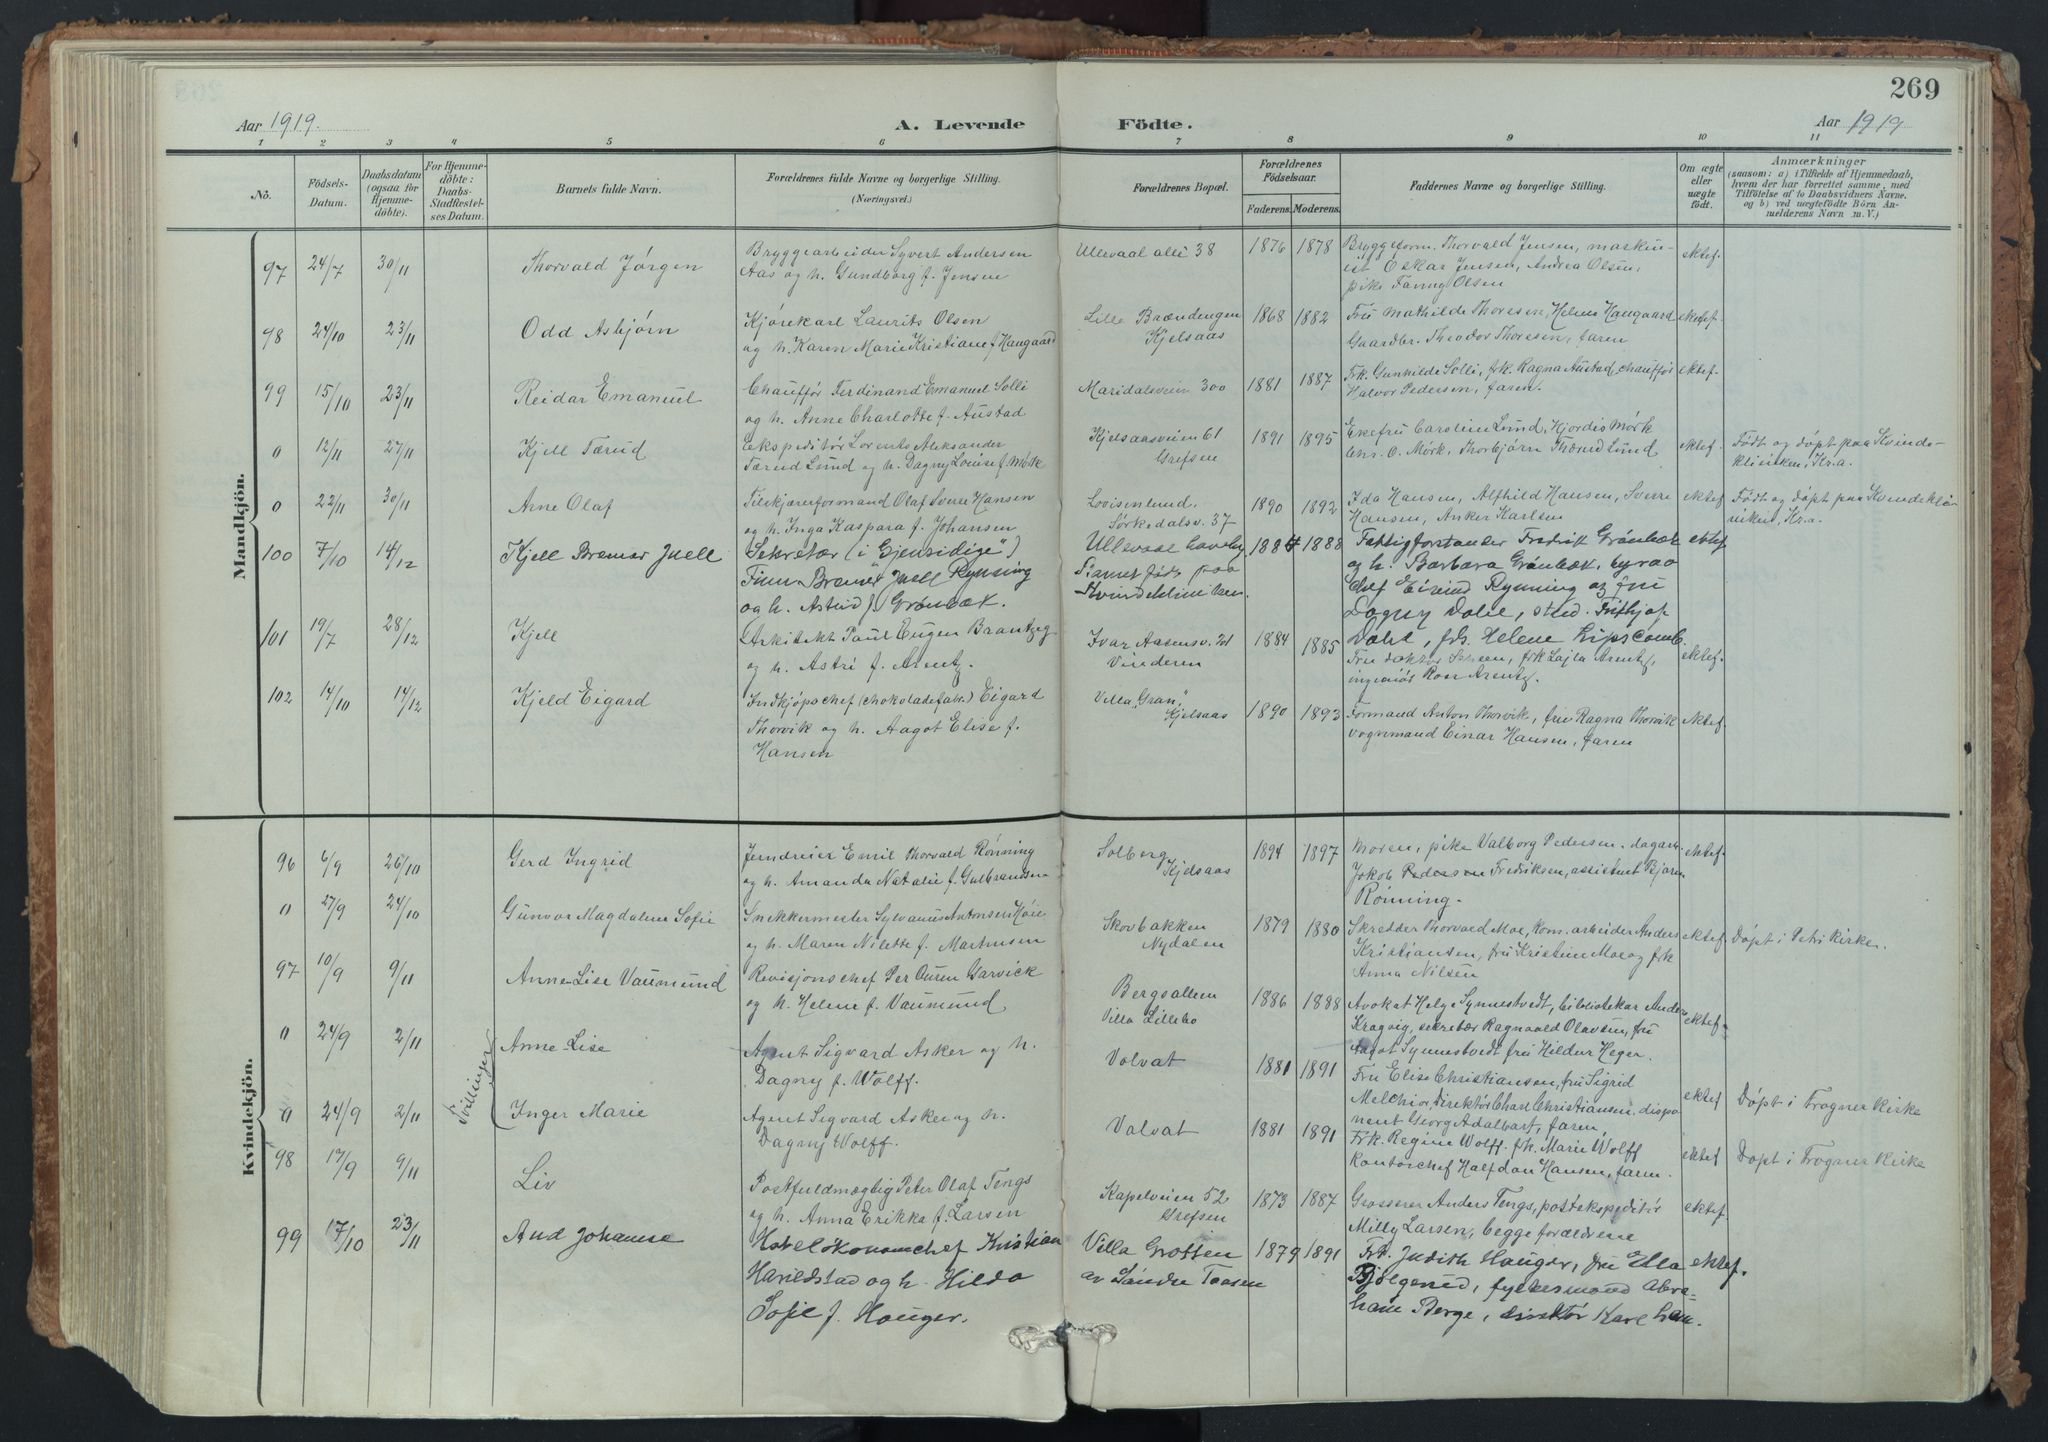 269
Aar 1919. A. Levende Födte. Aar 1919
1 2 3 4 5 6 7 8 9 10 11
No. Födsels-Datum. Daabsdatum (ogsaa for Hjemmedöbte). For Hjemmedöbte: Daabs-Stadfæstelses Datum. Barnets fulde Navn. Forældrenes fulde Navne og borgerlige Stilling. (Næringsvei.) Forældrenes Bopæl. Forældrenes Födselsaar. Faderens. Moderens. Faddernes Navne og borgerlige Stilling. Om ægte eller uægte födt. Anmærkninger (saasom: a) i Tilfælde af Hjemmedaab, hvem der har forrettet samme, med Tilföielse af to Daabsvidners Navne, og b) ved uægtefödte Börn Anmelderens Navn m. V.)
Mandkjön.
97 24/7 30/11 Thorvald Jørgen
Bryggearbeider Syvert Andersen
Aas og h. Gundborg f. Jensen
Ullevaal allé 38 1876 1878
Bryggeform. Thorvald Jensen, maskin-
ist Oskar Jensen, Andrea Olsen,
pike Fanny Olsen
ektef.
98 24/10 23/11 Odd Asbjørn
Kjørekarl Laurits Olsen
og h. Karen Marie Kristiane f. Haugaard
Lille Brændengen
Kjelsaas
1868 1882
Fru Mathilde Thoresen, Helene Haugaard
Gaardbr. Theodor Thoresen, faren
ektef.
99 15/10 23/11 Reidar Emanuel
Chauffør Ferdinand Emanuel Solli
og h. Anne Charlotte f. Austad
Maridalsveien 300 1881 1887
Frk. Gunhilde Solli, frk. Ragna Austad, chauffør
Halvor Pedersen, faren.
ektef.
0 12/11 27/11 Kjell Tærud
Ekspeditør Lorents Aleksander
Tærud Lund og h. Dagny Louise f. Mørk
Kjelsaasveien 61
Grefsen
1891 1895
Ekefru Caroline Lund, Hjordis Mørk
Chr. O. Mørk, Thorbjørn Tærud Lund
ektef.
Født og døpt paa Kvinde-
klinikken, Kr.a.
0 22/11 30/11 Arne Olaf
Tilskjærerformand Olaf Sverre Hansen
og h. Inga Kaspara f. Johansen
Lovisenlund.
Sørkedalsv. 37
1890 1892
Ida Hansen, Alfhild Hansen, Sverre
Hansen, Anker Karlsen
ektef.
Født og døpt paa Kvindekli-
niken, Kr.a.
100 7/10 14/12 Kjell Bremer Juell
Sekretær (i "Gjensidige")
Finn Bremer Juell Rynning
og h. Astrid f. Grønbæk.
Ullevaal haveby
Barnet født paa
Kvindekliniken.
1884 1888
Fattigforstander Fredrik Grønbæk
og h. Barbara Grønbæk, byraa
chef Eivind Rynning og fru
Dagny Dahl, stud. Fritjof
Dahl, frk. Helene Lipscomb.
ektef
101 19/7 28/12 Kjell
Arkitekt Paul Eugen Brantzeg
og h. Astri f. Arentz.
Ivar Aasensv. 21
Vinderen
1884 1885
Fru doktor Scheen, frk Lajla Arentz,
ingeniør Roar Arentz.
ektef.
102 14/10 14/12 Kjeld Eigard
Indkjøpschef (chokoladefabr.) Eigard
Thorvik og h. Aagot Elise f.
Hansen
Villa "Gran",
Kjelsaas
1890 1893
Formand Anton Thorvik, fru Ragna Thorvik
vognmand Einar Hansen, faren
ektef.
Kvindekjön.
96 6/9 26/10 Gerd Ingrid
Jerndreier Emil Thorvald Rønning
og h. Amanda Natalie f. Gulbrandsen
Solberg
Kjelsaas
1894 1897
Moren, pike Valborg Pedersen, dagarb.
Jakob Pedersen Fredriksen, assistent Bjarne
Rønning.
ektef.
0 27/9 24/10 Gunvor Magdalene Sofie
Snekkermester Sylvanus Antonsen Høie
og h. Maren Nilette f. Martinsen
Skovbakken
Nydalen
1879 1880
Skredder Thorvald Moe, kom.arbeider Anders
Kristiansen, fru Kristine Moe og frk
Anna Nilsen
ektef.
Døpt i Petri kirke.
97 10/9 9/11 Anne-Lise Vaumund
Revisjonschef Per Ouren Garvick
og h. Helene f. Vaumund
Bergsalleen
Villa Lillebo
1886 1888
Avokat Helge Synnestvedt, bibliotekar Anders
Kragvig, sekretær Ragnvald Olavsen, fru
Aagot Synnestvedt fru Hildur Heger.
ektef.
Tvillinger
0 24/9 2/11 Anne-Lise
Agent Sigvard Asker og h.
Dagny f. Wolff.
Volvat 1881 1891
Fru Elise Christiansen, fru Sigrid
Melchior, Direktør Charl Christiansen, dispo-
nent Georg Adalbart, faren,
ektef
Døpt i Frogner kirke
0 24/9 2/11 Inger Marie
Agent Sigvard Asker og h.
Dagny Wolff.
Volvat 1881 1891
Frk. Regine Wolff. frk. Marie Wolff
Kontorchef Halfdan Hansen, faren.
ektef
Døpt i Frogner kirke
98 17/9 9/11 Liv
Postfuldmægtig Peter Olaf Tengs
og h. Anna Erikka f. Larsen
Kapelveien 52
Grefsen
1873 1887
Grosserer Anders Tengs, postekspeditør
Milly Larsen, begge forældrene
ektef.
99 17/10 23/11 Aud Johanne
Hotelökonomchef Kristian
Harildstad og h. Hilda
Sofie f. Hauger.
Villa Grotten
av Søndre Taasen
1879 1891
Frk. Judith Hauger, fru Ella
Bjølgerud, fylkesmand Abra-
ham Berge, direktør Karl Lam.
ektef.